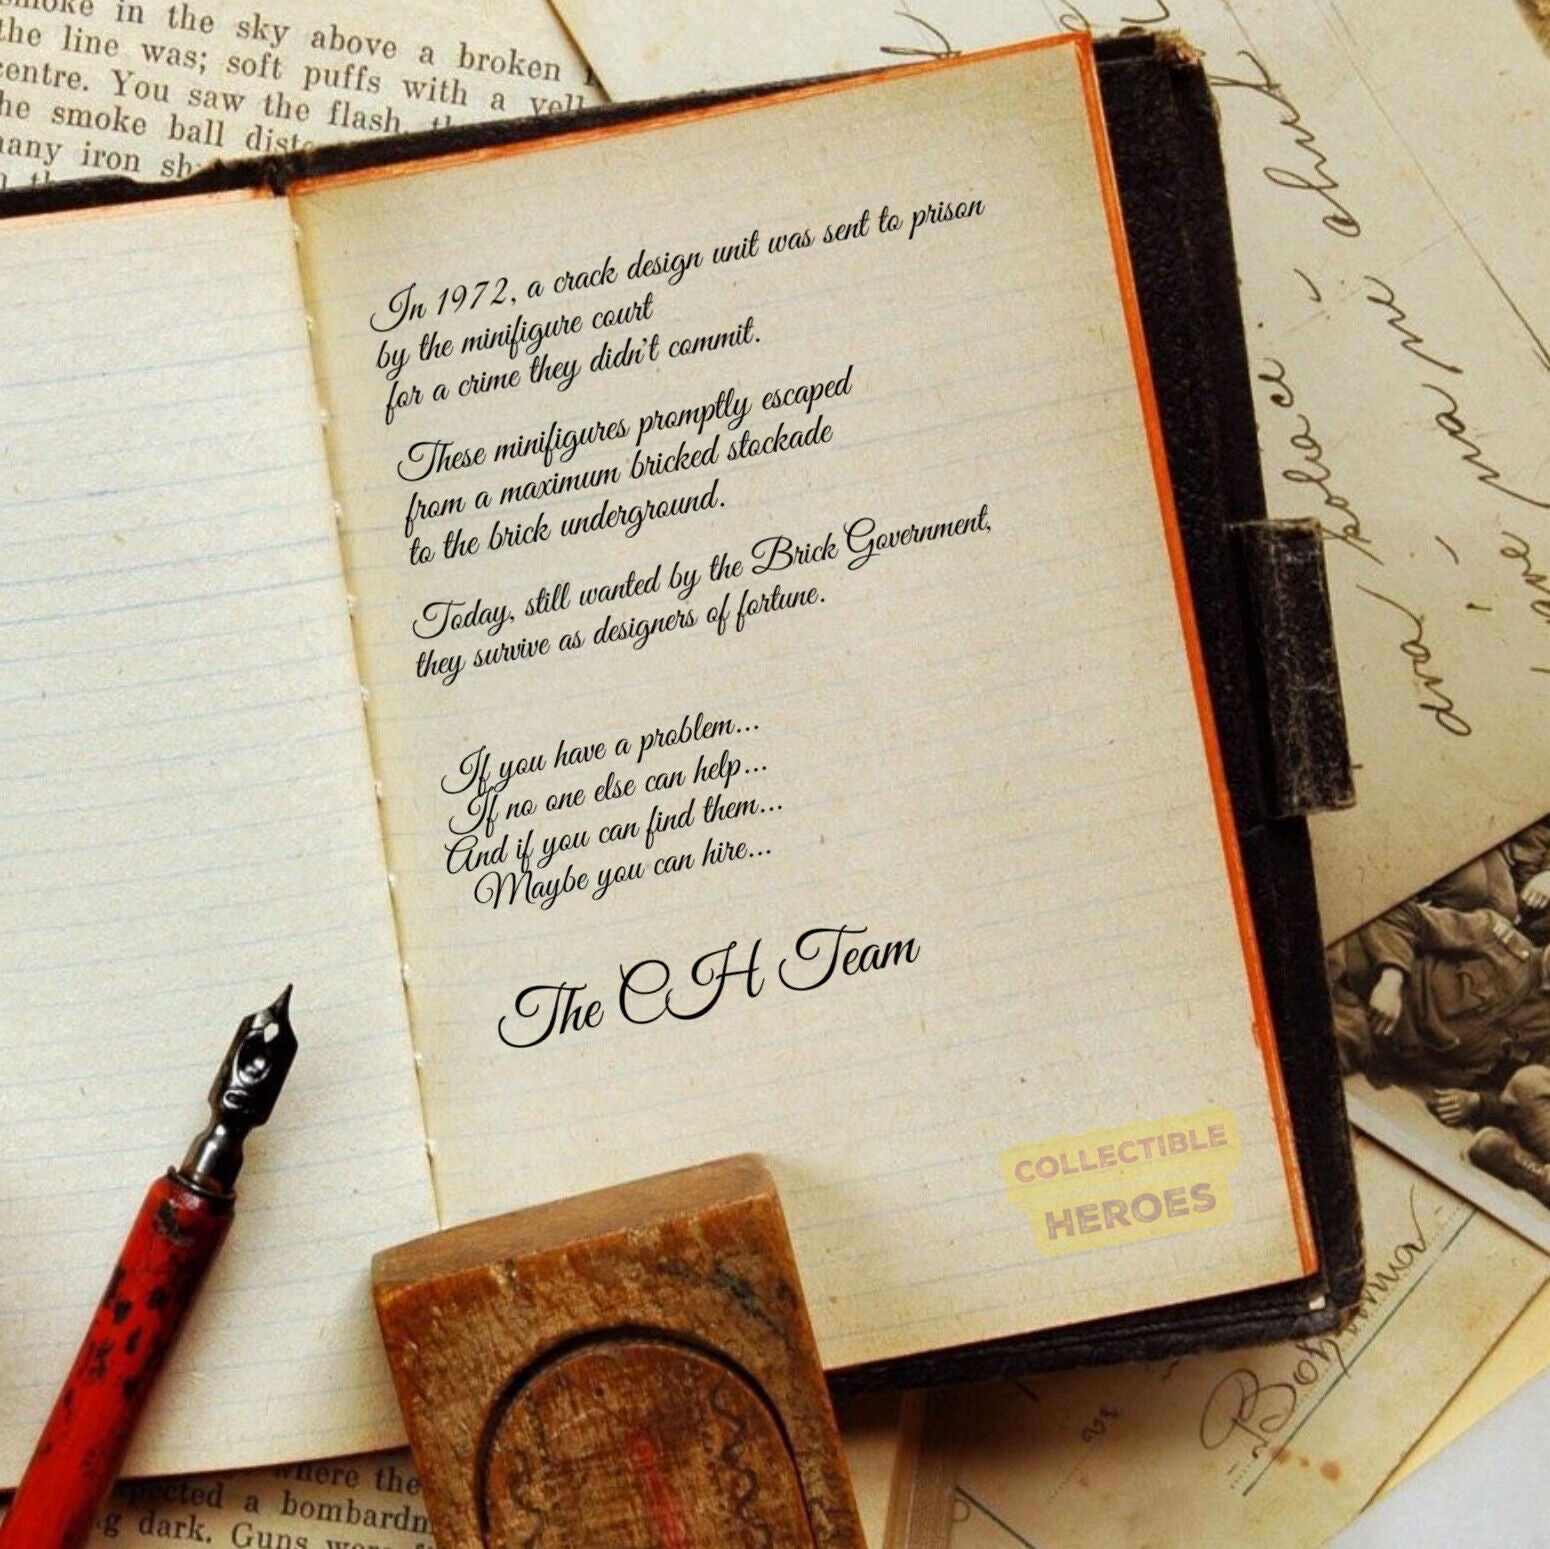 smoke in the sky above a broken
the line was; soft puffs with a yell
centre. You saw the flash, th
he smoke ball dist
many iron sh
In 1972, a crack design unit was sent to prison
by the minifigure court
for a crime they didn't commit.
These minifigures promptly escaped
from a maximum bricked stockade
to the brick underground.
Today, still wanted by the Brick Government,
they survive as designers of fortune.
If you have a problem...
If no one else can help...
And if you can find them...
Maybe you can hire...
The CH Team
COLLECTIBLE
HEROES
where the
pected a bombardm
g dark. Guns were